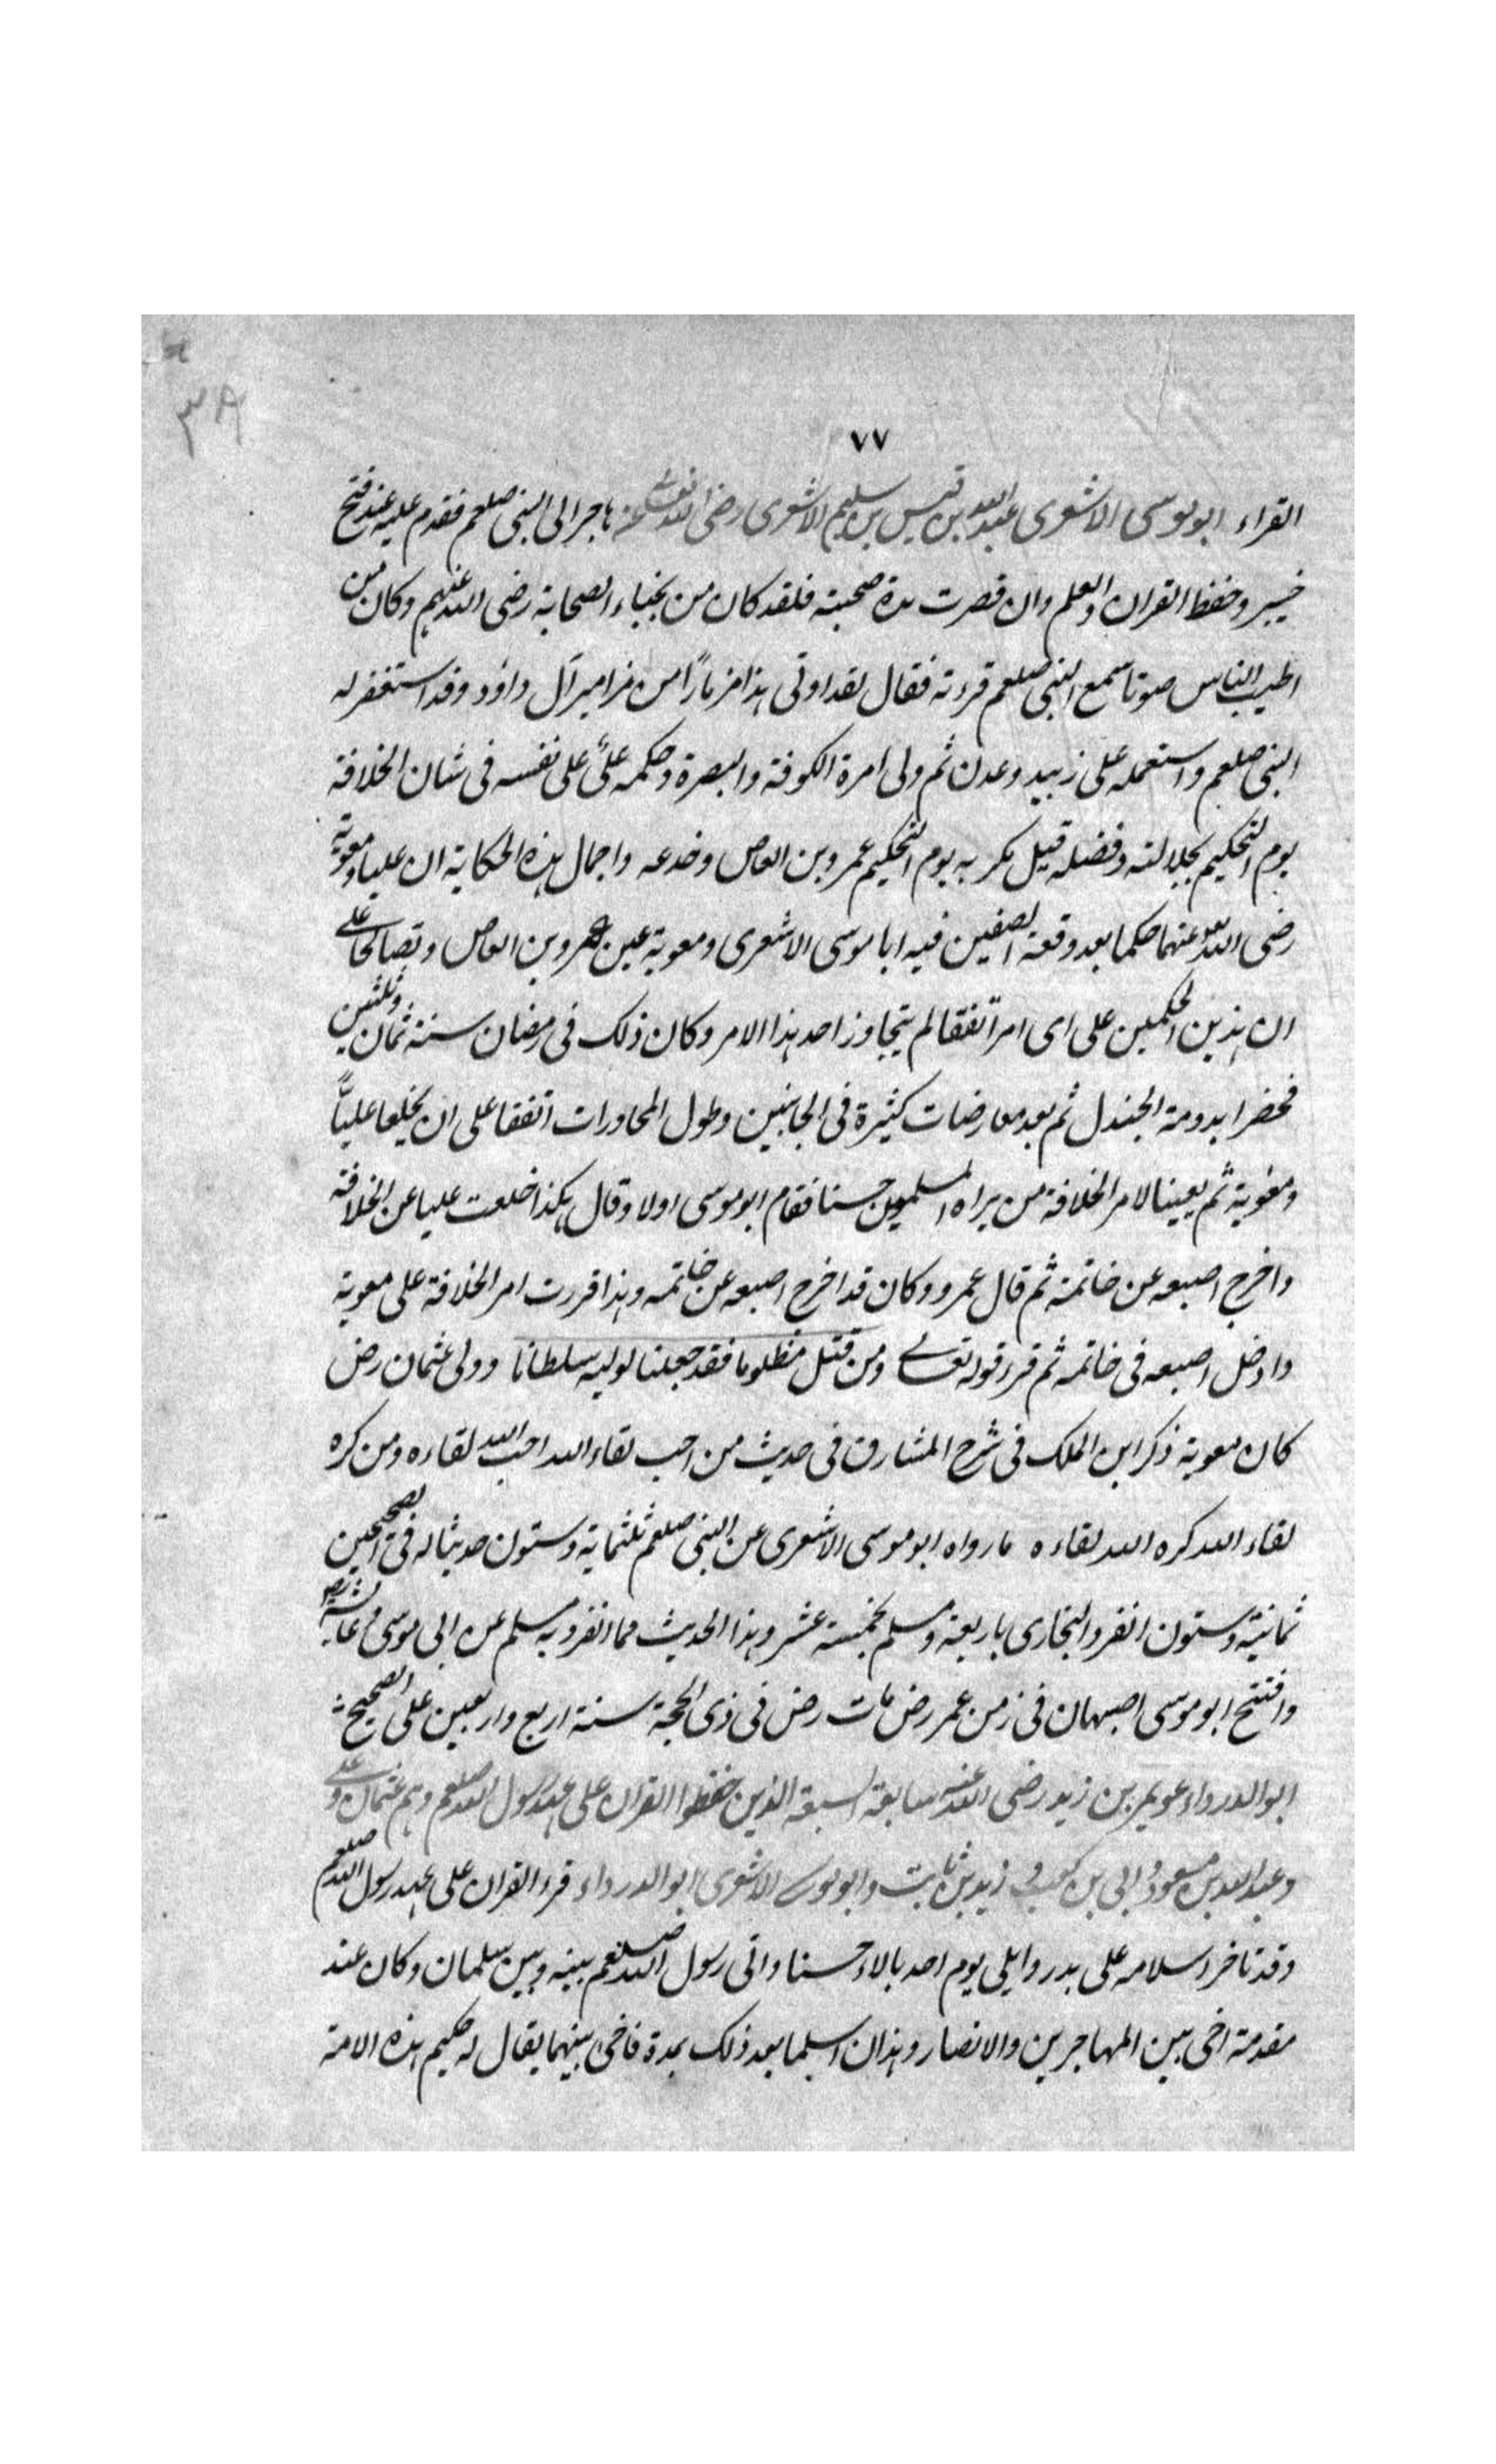 ٣٨
٧٧
القراء ابو موسى الاشعرى عبد الله بن قيس بن سليم الاشعرى رضى الله تعالى عنه هاجر الى النبى صلعم فقدم عليه عند فتح
خيبر وحفظ القران والعلم وان قصرت مدة صحبته فلقد كان من نجباء الصحابة رضى الله عنهم وكان من
اطيب الناس صوتا سمع النبى صلعم قرءته فقال لقد اوتى هذا مزمارًا من مزامير آل داؤد وقد استغفر له
النبى صلعم واستعمله على زبيد وعدن ثم ولى امرة الكوفة والبصرة وحكمه علىّ على نفسه فى شان الخلافة
يوم التحكيم بجلالته وفضله قيل مكر به يوم التحكيم عمرو بن العاص وخدعه واجمال هذه الحكاية ان عليا ومعوية
رضى الله عنهما حكما بعد وقعة الصفين فيه ابا موسى الاشعرى ومعوية عين عمرو بن العاص وتصالحا على
ان هذين الحكمين على اى امر اتفقا لم يتجاوز احد هذا الامر وكان ذلك فى رمضان سنة ثمان وثلثين
فحضرا بدومة الجندل ثم بعد معارضات كثيرة فى الجانبين وطول المحاورات اتفقا على ان يخلعا عليًّا
ومعوية ثم يعينا لامر الخلافة من يراه المسلمون حسنا فقام ابو موسى اولا وقال هكذا خلعت عليا عن الخلافة
واخرج اصبعه عن خاتمه ثم قال عمرو وكان قد اخرج اصبعه عن خاتمه وهذا قررت امر الخلافة على معوية
وادخل اصبعه فى خاتمه ثم قرء قوله تعالى ومن قتل مظلوما فقد جعلنا لوليه سلطانا وولى عثمان رض
كان معوية ذكر ابن الملك فى شرح المشارق فى حديث من احب لقاء الله احب الله لقاءه ومن كره
لقاء الله كره الله لقاءه ما رواه ابو موسى الاشعرى عن النبى صلعم ثلثماية وستون حديثا له فى الصحيحين
ثمانية وستون انفرد البخارى باربعة ومسلم بخمسة عشر وهذا الحديث مما انفرد به مسلم عن ابى موسى وعائشة رض
وافتتح ابو موسى اصبهان فى زمن عمر رض مات رض فى ذى الحجة سنة اربع واربعين على الصحيح
ابو الدرداء عويمر بن زيد رضى الله عنه سابعة السبعة الذين حفظوا القران على عهد رسول الله صلعم وهم عثمان وعلى
وعبد الله بن مسعود وابى بن كعب وزيد بن ثابت وابو موسى الاشعرى ابو الدرداء قرء القران على عهد رسول الله صلعم
وقد تاخر اسلامه على بدر وابلى يوم احد بالاء حسنا واتى رسول الله صلعم بينه وبين سلمان وكان عند
مقدمة اخى بين المهاجرين والانصار وهذان اسلما بعد ذلك بمدة فاخى بينهما يقال له حكيم هذه الامة